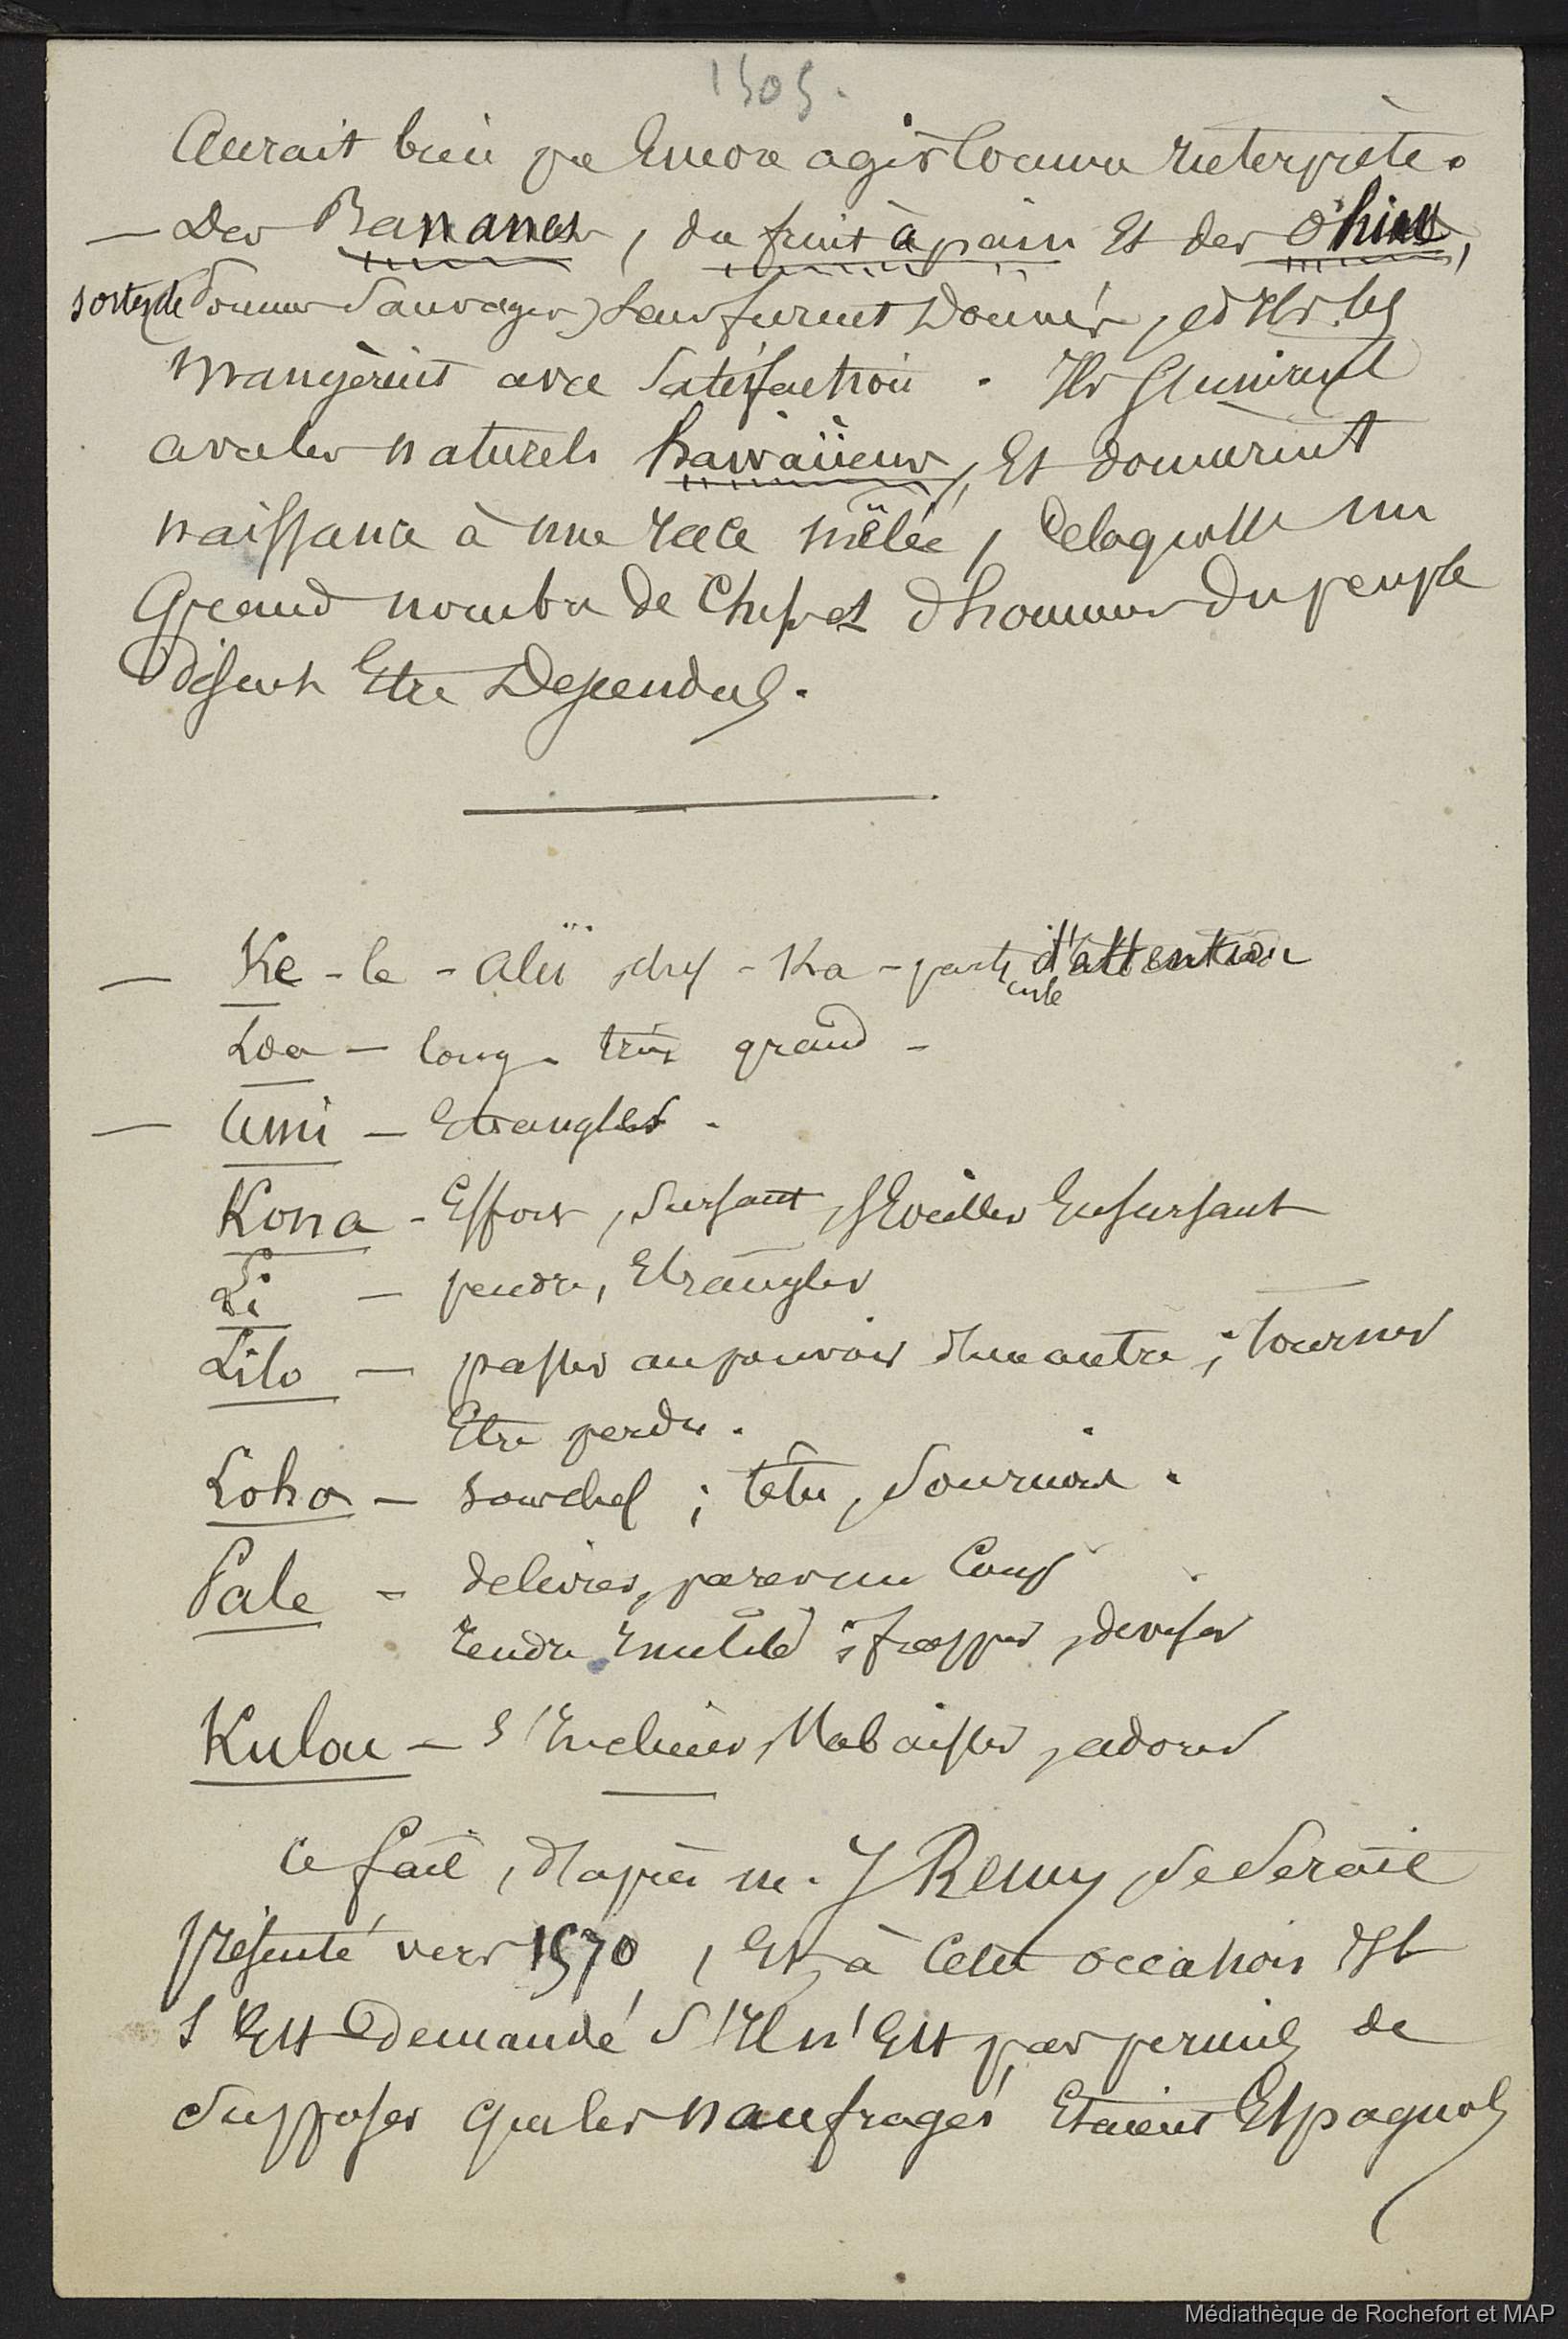 1505.
Aurait bien pu Encore agir Comme interprète.
— Des Bananes, du fruit à pain Et des ohias,
sortes de pommes Sauvages, Leur furent Donnés, et Ils les
mangèrent avec Satisfaction. Ils S'unirent
avec les naturels hawaïiens, Et donnèrent
naissance à une race mêlée, de laquelle un
Grand nombre de Chefs et d'hommes du peuple
disent Etre Descendus.
— Ke - le - Alii, chef - Ka - particule d'attention
Loa — long. très grand -
— Umi — Etrangler.
Kona - Effort, Sursaut, S'Eveiller En sursaut
Li — pendre, Etrangler
Lilo — passer au pouvoir d'un autre; tourner
Etre perdu.
Loho — sourd; têtu, Sournois.
Pale - delivrer, parer un Coup
rendre Inutile; frapper, diviser
Kulou — s'Incliner, S'abaisser, adorer
Ce fait, d'après M. J Remy, Se Serait
présenté vers 1570, Et, à Cette occasion Il
s'Est demandé S'Il n'Est pas permis de
Supposer que les naufragés Etaient Espagnols
Médiathèque de Rochefort et MAP